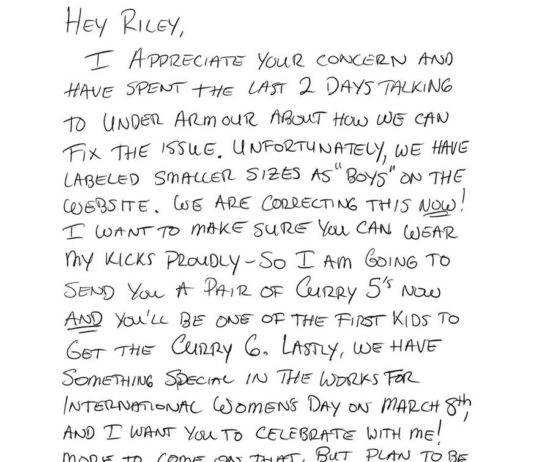 HEY RILEY,
I APPRECIATE YOUR CONCERN AND
HAVE SPENT THE LAST 2 DAYS TALKING
TO UNDER ARMOUR ABOUT HOW WE CAN
FIX THE ISSUE. UNFORTUNATELY, WE HAVE
LABELED SMALLER SIZES AS "BOYS" ON THE
WEBSITE. WE ARE CORRECTING THIS NOW!
I WANT TO MAKE SURE YOU CAN WEAR
MY KICKS PROUDLY - SO I AM GOING TO
SEND YOU A PAIR OF CURRY 5'S NOW
AND YOU'LL BE ONE OF THE FIRST KIDS TO
GET THE CURRY 6. LASTLY, WE HAVE
SOMETHING SPECIAL IN THE WORKS FOR
INTERNATIONAL WOMENS DAY ON MARCH 8th,
AND I WANT YOU TO CELEBRATE WITH ME!
MORE TO COME ON THAT, BUT PLAN TO BE